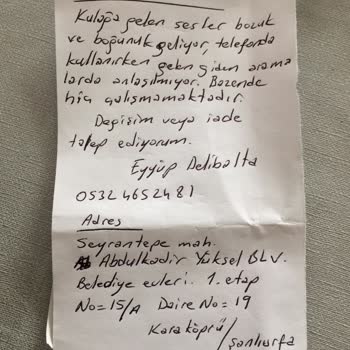 Kulağa gelen sesler bozuk
ve boğunuk geliyor, telefonda
kullanırken gelen giden arama
larda anlaşılmıyor. Bazende
hiç çalışmamaktadır.
Değişim veya iade
talep ediyorum.
Eyyüp Delibalta
0532 465 24 81
Adres
Seyrantepe mah.
Abdulkadir Yüksel BLV.
Belediye evleri. 1. etap
No=15/A Daire No=19
Karaköprü/
Şanlıurfa